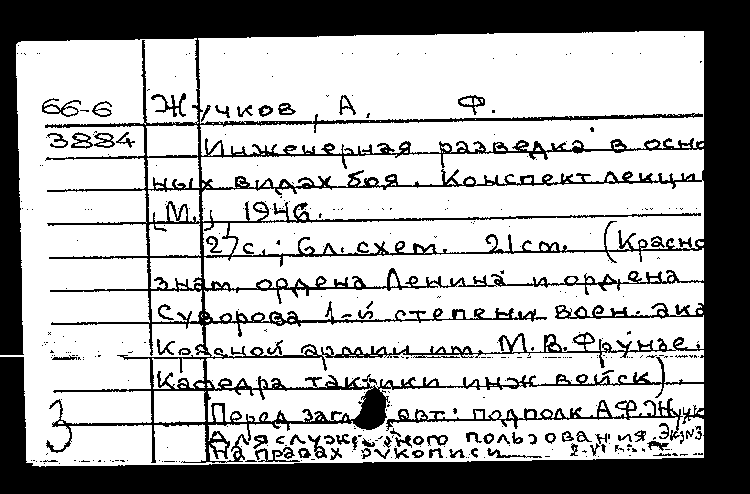 66-6 Жучков, А. Ф.
3884 Инженерная разведка в осно
ных видах боя. Конспект лекции
[М.], 1946.
27с.; 6 л. схем. 21 cm. (Красно
знам. ордена Ленина и ордена
Суворова 1-й степени воен. ака
Красной армии им. М. В. Фрунзе.
Кафедра тактики инж войск).
Перед загл. авт: подполк. А.Ф. Жучк
Для служебного пользования. Экз №3
на правах рукописи
3